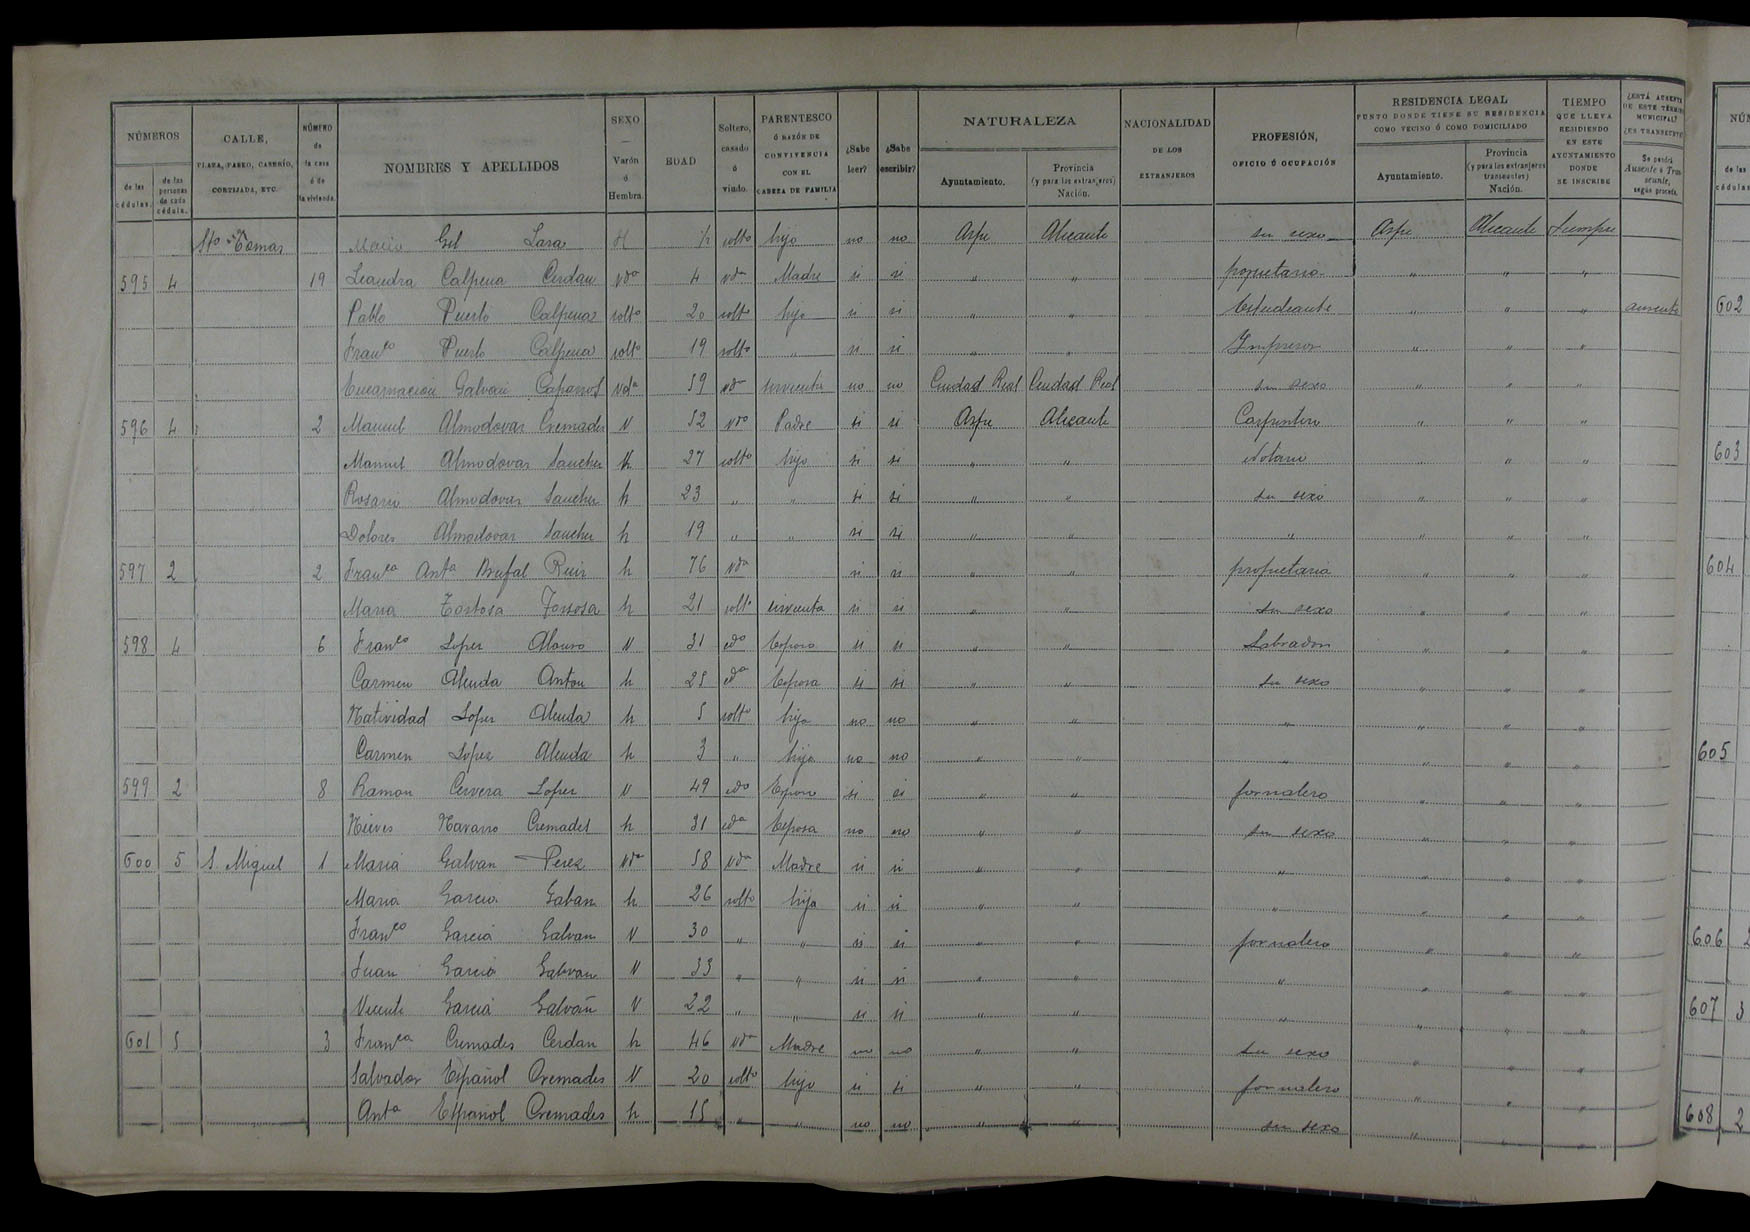 NÚMEROS | CALLE, PLAZA, PASEO, CASERÍO, CORTIJADA, ETC. | NÚMERO de la casa ó de la vivienda. | NOMBRES Y APELLIDOS | SEXO — Varón ó Hembra. | EDAD | Soltero, casado ó viudo. | PARENTESCO Ó RAZÓN DE CONVIVENCIA CON EL CABEZA DE FAMILIA | ¿Sabe leer? | ¿Sabe escribir? | NATURALEZA | NACIONALIDAD DE LOS EXTRANJEROS | PROFESIÓN, OFICIO Ó OCUPACIÓN | RESIDENCIA LEGAL PUNTO DONDE TIENE SU RESIDENCIA COMO VECINO Ó COMO DOMICILIADO | TIEMPO QUE LLEVA RESIDIENDO EN ESTE AYUNTAMIENTO DONDE SE INSCRIBE | ¿ESTÁ AUSENTE DE ESTE TÉRMINO MUNICIPAL?
de las cédulas. | de las personas de cada cédula. | Ayuntamiento. | Provincia (y para los extranjeros) Nación. | Ayuntamiento. | Provincia (y para los extranjeros transeuntes) Nación. | Se pondrá Ausente ó Transeunte, según proceda.
Sto Tomas | Maria Gil Lara | H | ½ | solto | hijo | no | no | Aspe | Alicante | su sexo | Aspe | Alicante | Siempre
595 | 4 | 19 | Leandra Calpena Cerdan | vda | 4 | vda | Madre | si | si | " | " | propietario | " | " | "
Pablo Puerto Calpena | solto | 20 | solto | hijo | si | si | " | " | Estudiante | " | " | " | ausente | 602
Franco Puerto Calpena | solto | 19 | solto | " | si | si | " | " | Impresor | " | " | "
Encarnacion Galvan | vda | 59 | vda | sirvienta | no | no | Ciudad Real | Ciudad Real | su sexo | " | " | "
596 | 4 | 2 | Manuel Almodovar Cremades | V | 52 | vdo | Padre | si | si | Aspe | Alicante | Carpintero | " | " | "
Manuel Almodovar Sanchez | 27 | solto | hijo | si | si | " | " | Notario | " | " | " | 603
Rosario Almodovar Sanchez | h | 23 | " | " | si | si | " | " | su sexo | " | " | "
Dolores Almodovar Sanchez | h | 19 | " | " | si | si | " | " | " | " | " | "
597 | 2 | 2 | Franca Anta Brufal Ruiz | h | 76 | vda | si | si | " | " | propietaria | " | " | " | 604
Maria Tortosa | h | 21 | solto | sirvienta | si | si | " | " | su sexo | " | " | "
598 | 4 | 6 | Franco Lopez Alonso | V | 31 | cdo | Esposo | si | si | " | " | Labrador | " | " | "
Carmen Alenda Anton | h | 25 | cda | Esposa | si | si | " | " | su sexo | " | " | "
Natividad Lopez Alenda | h | 5 | solto | hija | no | no | " | " | " | " | " | "
Carmen Lopez Alenda | h | 3 | " | hija | no | no | " | " | " | " | " | " | 605
599 | 2 | 8 | Ramon Cervera Lopez | V | 49 | cdo | Esposo | si | si | " | " | jornalero | " | " | "
Nieves Navarro Cremades | h | 31 | cda | Esposa | no | no | " | " | su sexo | " | " | "
600 | 5 | S. Miguel | 1 | Maria Galvan Perez | vda | 58 | vda | Madre | si | si | " | " | " | " | " | "
Maria Garcia Galban | h | 26 | solto | hija | si | si | " | " | " | " | " | "
Franco Garcia Galvan | V | 30 | " | " | si | si | " | " | jornalero | " | " | " | 606 | 2
Juan Garcia Galvan | V | 33 | " | " | si | si | " | " | " | " | " | "
Vicente Garcia Galvañ | V | 22 | " | " | si | si | " | " | " | " | " | " | 607 | 3
601 | 5 | 3 | Franca Cremades Cerdan | h | 46 | vda | Madre | no | no | " | " | su sexo | " | " | "
Salvador Español Cremades | V | 20 | solto | hijo | si | si | " | " | jornalero | " | " | "
Anta Español Cremades | h | 15 | " | " | no | no | " | " | su sexo | " | " | " | 608 | 2